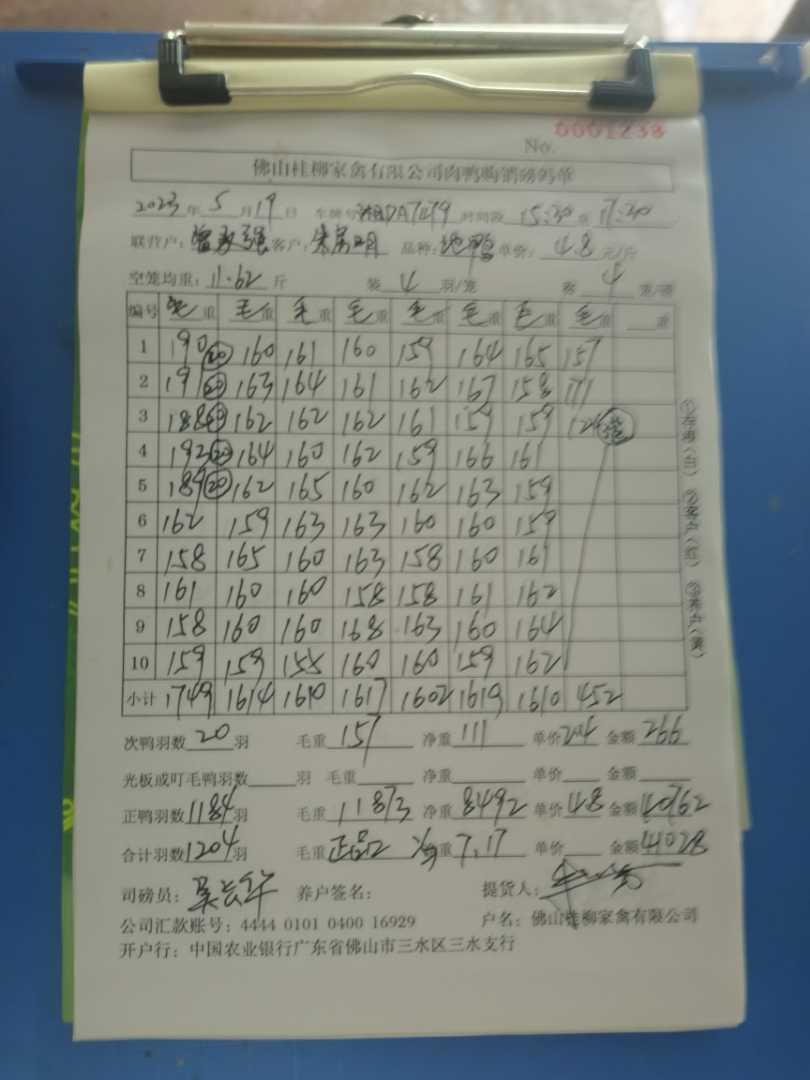 No. 0001238
佛山桂柳家禽有限公司肉鸭购销磅码单
2023年5月19日 车牌号 时间段 15:30至17:30
联营户: 客户: 品种: 单价: 4.8 元/斤
空笼均重: 11.62 斤 装 4 羽/笼 4
编号 毛重 毛重 毛重 毛重 毛重 毛重 毛重 毛重 重
1 190 20 160 161 160 159 164 165 157
2 191 20 163 164 161 162 167 158 171
3 188 162 162 162 161 159 159 124
4 192 20 164 160 162 159 166 161
5 189 20 162 165 160 162 163 159
6 162 159 163 163 160 160 159
7 158 165 160 163 158 160 161
8 161 160 160 158 158 161 162
9 158 160 160 168 163 160 164
10 159 159 155 160 160 159 162
小计 1749 1614 1610 1617 1602 1619 1610 452
次鸭羽数 20 羽 毛重 157 净重 111 单价 金额 266
光板或叮毛鸭羽数 羽 毛重 净重 单价 金额
正鸭羽数 1184 羽 毛重 11873 净重 8492 单价 4.8 金额 40762
合计羽数 1204 羽 毛重 正品 重 7.17 单价 金额 41028
司磅员: 养户签名: 提货人:
公司汇款账号: 4444 0101 0400 16929 户名: 佛山桂柳家禽有限公司
开户行: 中国农业银行广东省佛山市三水区三水支行